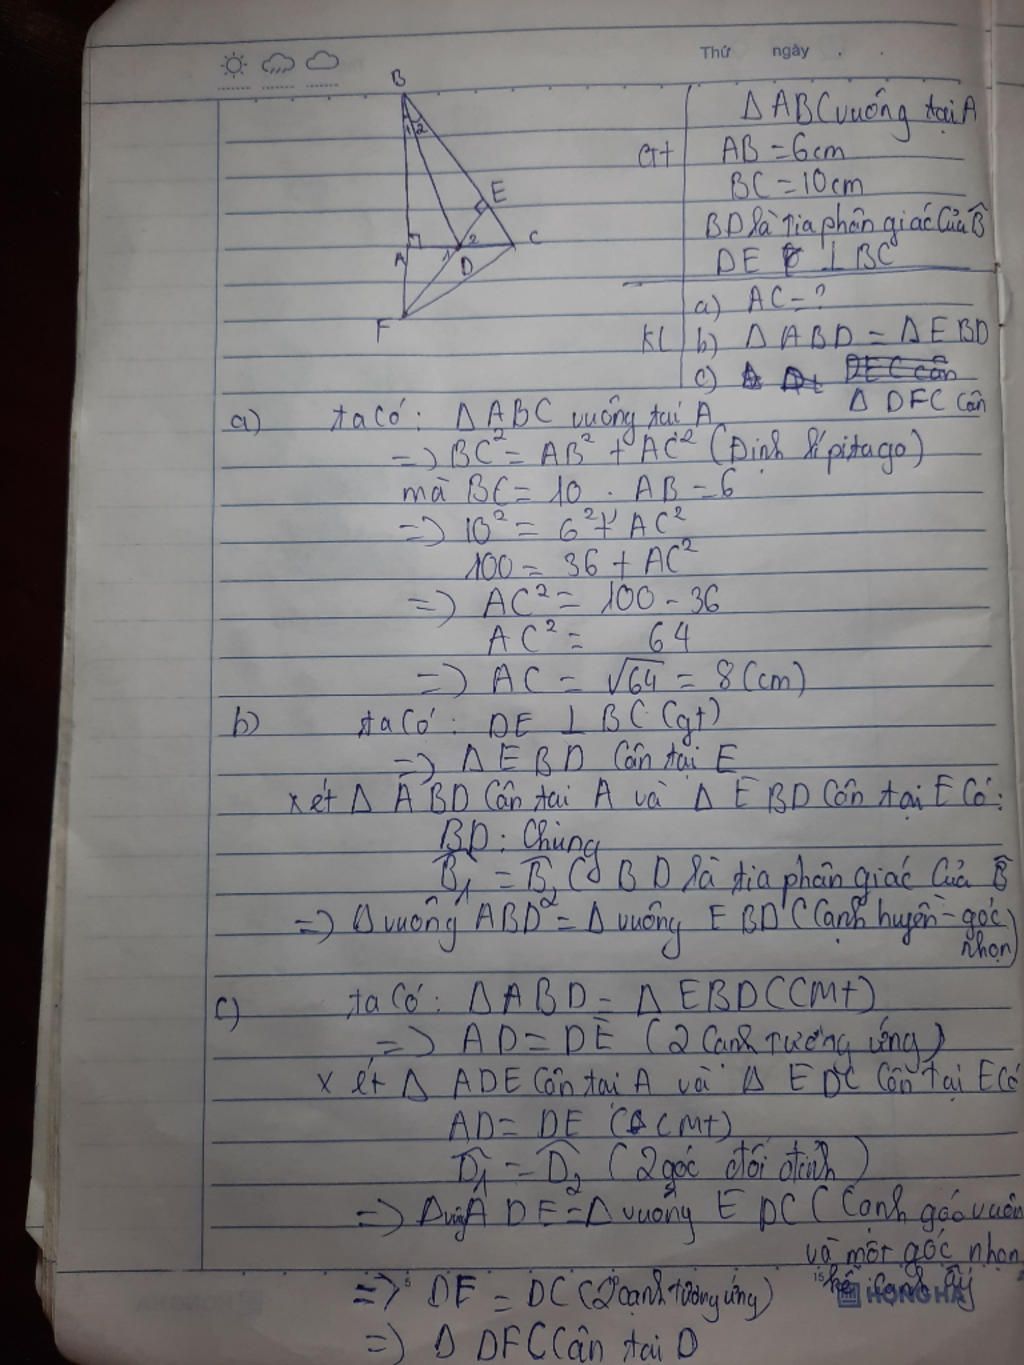 Thứ ngày . .
B
1 2
E
A 1 2 C
D
F
Δ ABC vuông tại A
Gt AB = 6cm
BC = 10cm
BD là tia phân giác của B̂
DE ⊥ BC
a) AC = ?
KL b) Δ ABD = Δ EBD
c) DEC cân
Δ DFC cân
a) ta có: Δ ABC vuông tại A
=> BC² = AB² + AC² (Định lí pitago)
mà BC = 10 . AB = 6
=> 10² = 6² + AC²
100 = 36 + AC²
=> AC² = 100 - 36
AC² = 64
=> AC = √64 = 8 (cm)
b) ta có: DE ⊥ BC (gt)
=> Δ EBD cân tại E
xét Δ ABD cân tại A và Δ EBD cân tại E có:
BD: Chung
B̂₁ = B̂₂ (BD là tia phân giác của B̂
=> Δ vuông ABD = Δ vuông EBD (cạnh huyền - góc
nhọn)
c) ta có: Δ ABD = Δ EBD (CMt)
=> AD = DE (2 cạnh tương ứng)
xét Δ ADE cân tại A và Δ EDC cân tại E có
AD = DE (CMt)
D̂₁ = D̂₂ (2 góc đối đỉnh)
=> Δ ADE = Δ vuông EDC (cạnh góc vuôn
và một góc nhọn
kề cạnh ấy
=> DE = DC (2 cạnh tương ứng)
HONG HA
=> Δ DFC cân tại D